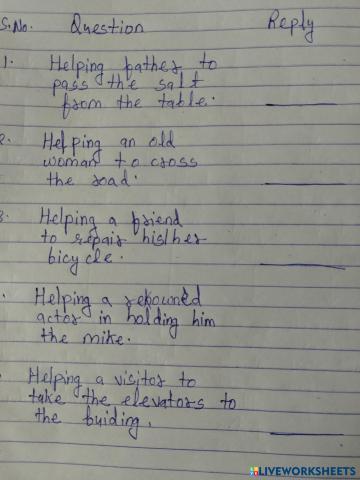 S.No. Question Reply
1. Helping father to
pass the salt
from the table.
2. Helping an old
woman to cross
the road.
3. Helping a friend
to repair his/her
bicycle.
Helping a renouned
actor in holding him
the mike.
Helping a visitor to
take the elevators to
the buiding.
LIVEWORKSHEETS